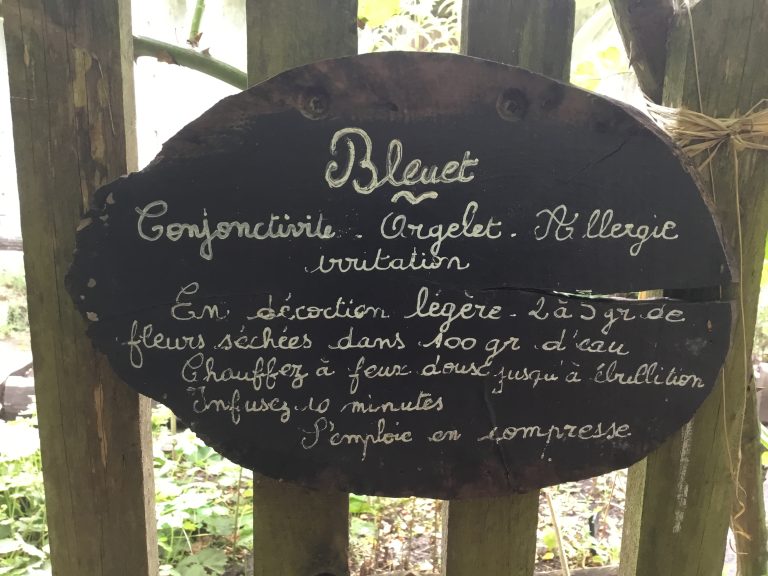 Bleuet
Conjonctivite - Orgelet - Allergie
irritation
En décoction légère - 2 à 5 gr de
fleurs séchées dans 100 gr d'eau
Chauffez à feux doux jusqu'à ébullition
Infusez 10 minutes
S'emploie en compresse